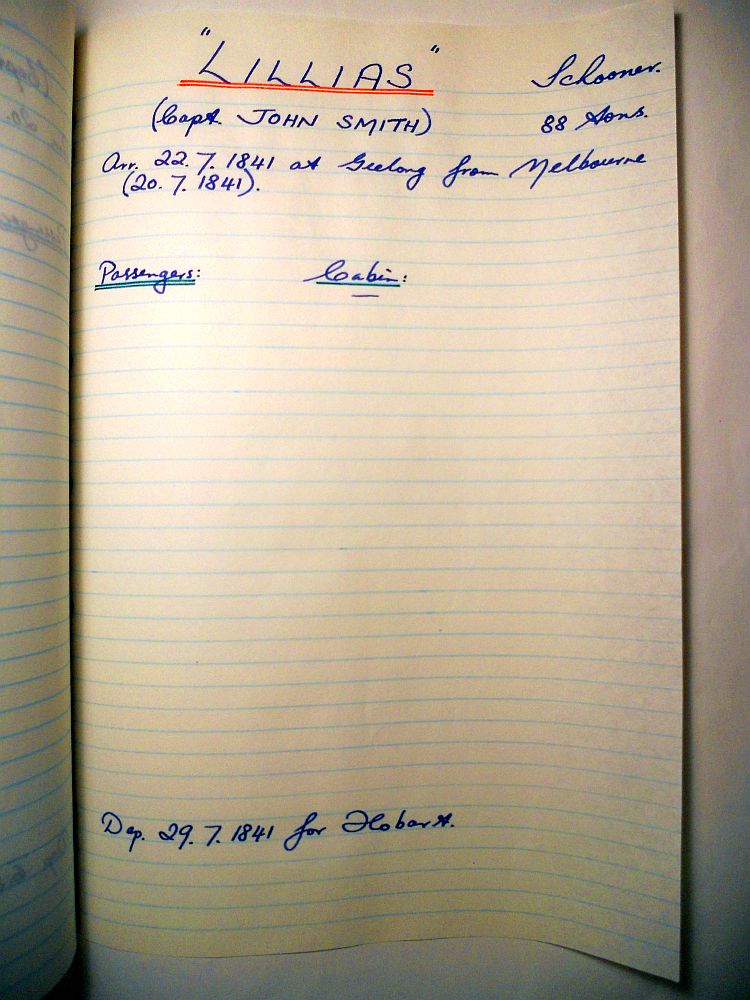 "LILLIAS" Schooner.
(Capt. JOHN SMITH) 88 tons.
Arr. 22.7.1841 at Geelong from Melbourne
(20.7.1841).
Passengers: Cabin:
Dep. 29.7.1841 for Hobart.